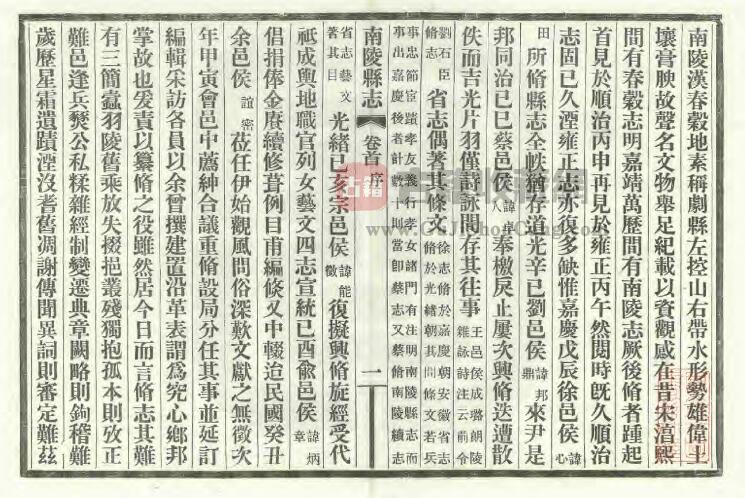 南陵漢春穀地素稱劇縣左控山右帶水形勢雄偉土
壤膏腴故聲名文物舉足紀載以資觀感在昔宋淳熙
間有春穀志明嘉靖萬歷間有南陵志厥後脩者踵起
首見於順治丙申再見於雍正丙午然閱時旣久順治
志固已久湮雍正志亦復多缺惟嘉慶戊辰徐邑侯諱心
田所脩縣志全帙猶存道光辛巳劉邑侯諱邦鼎來尹是
邦同治己巳蔡邑侯奉檄戾止屢次興脩迭遭散
佚而吉光片羽僅詩詠閒存其往事王邑侯成璐朗陵雜詠詩注云前令
劉石臣脩志省志偶著其條文徐志脩於嘉慶朝安徽省志脩於光緒朝其間條文若兵
事忠節宦蹟孝友義行孝女諸門有注明南陵縣志而事出嘉慶後者計數十則當即蔡志又蔡脩南陵續志
南陵縣志
卷首序
一
省志藝文著其目光緒己亥宗邑侯諱能徵復擬興脩旋經受代
祗成輿地職官列女藝文四志宣統己酉兪邑侯諱炳章
倡捐俸金賡續修葺例目甫編條又中輟迨民國癸丑
余邑侯誼密莅任伊始觀風問俗深歎文獻之無徵次
年甲寅會邑中薦紳合議重脩設局分任其事並延訂
編輯采訪各員以余曾撰建置沿革表謂為究心鄉邦
掌故也爰責以纂脩之役雖然居今日而言脩志其難
有三簡蠹羽陵舊乘放失掇挹叢殘獨抱孤本則攷正
難邑逢兵燹公私糅雜經制變遷典章闕略則鉤稽難
歲歷星霜遺蹟湮沒耆舊凋謝傳聞異詞則審定難茲